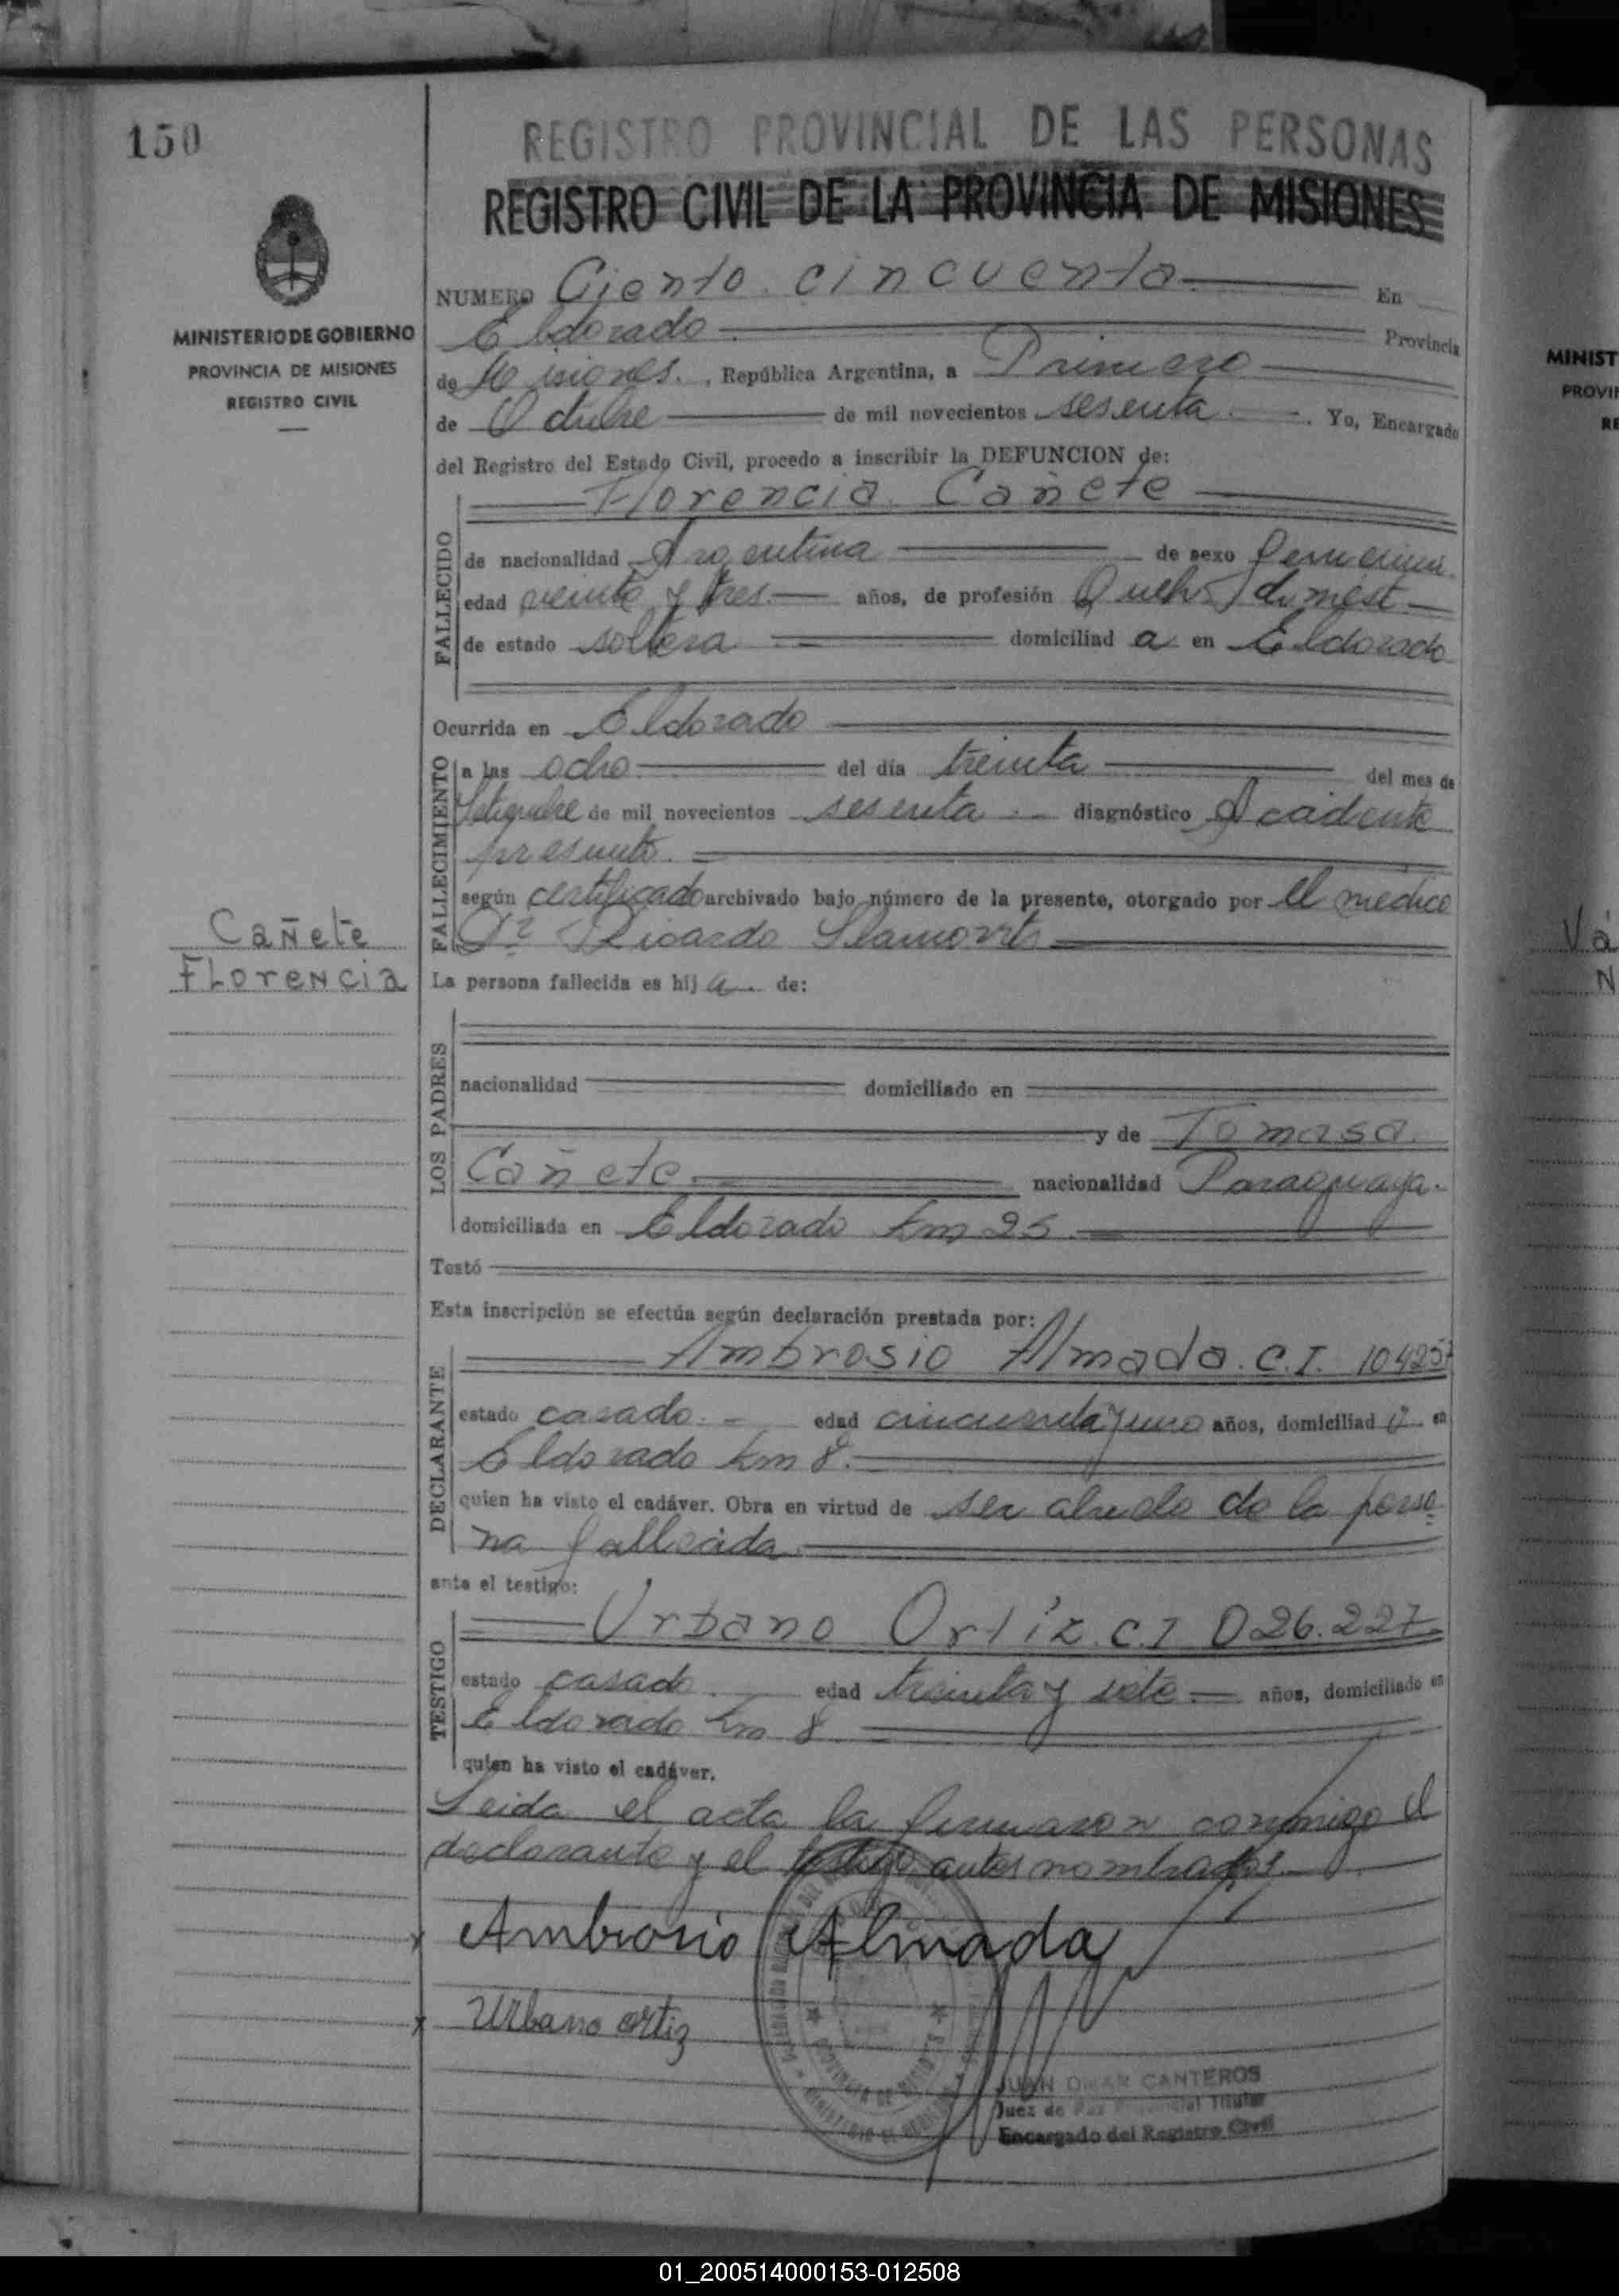 150
REGISTRO PROVINCIAL DE LAS PERSONAS
REGISTRO CIVIL DE LA PROVINCIA DE MISIONES
MINISTERIO DE GOBIERNO
PROVINCIA DE MISIONES
REGISTRO CIVIL
NUMERO Ciento cincuenta En
Eldorado Provincia
de Misiones. , República Argentina, a Primero
de Octubre de mil novecientos sesenta . Yo, Encargado
del Registro del Estado Civil, procedo a inscribir la DEFUNCION de:
Florencia Cañete
FALLECIDO
de nacionalidad Argentina de sexo femenin.
edad veinte y tres. años, de profesión Queh. domest
de estado soltera domiciliad a en Eldorado
Ocurrida en Eldorado
FALLECIMIENTO
a las ocho del día treinta del mes de
Setiembre de mil novecientos sesenta diagnóstico Accidente
presunto.
según certificado archivado bajo número de la presente, otorgado por el medico
Dr Ricardo
Cañete
Florencia
La persona fallecida es hij a de:
LOS PADRES
nacionalidad domiciliado en
y de Tomasa
Cañete nacionalidad Paraguaya.
domiciliada en Eldorado km 25
Testó
Esta inscripción se efectúa según declaración prestada por:
DECLARANTE
Ambrosio Almada. C.I. 104257
estado casado. edad cincuenta y uno años, domiciliad o en
Eldorado km 8.
quien ha visto el cadáver. Obra en virtud de ser de la perso
na fallecida
ante el testigo:
TESTIGO
Urbano Ortíz. C.I 026.227.
estado casado edad treinta y siete años, domiciliado en
Eldorado km 8
quien ha visto el cadáver.
Leida el acta la firmaron conmigo el
declarante y el testigo antes nombrados.
x Ambrosio Almada
x Urbano ortiz
PROVINCIA DE MISIONES
JUAN OMAR CANTEROS
Juez de Paz Provincial Titular
Encargado del Registro Civil
MINIST
PROVIN
RE
Vá
N
01_200514000153-012508